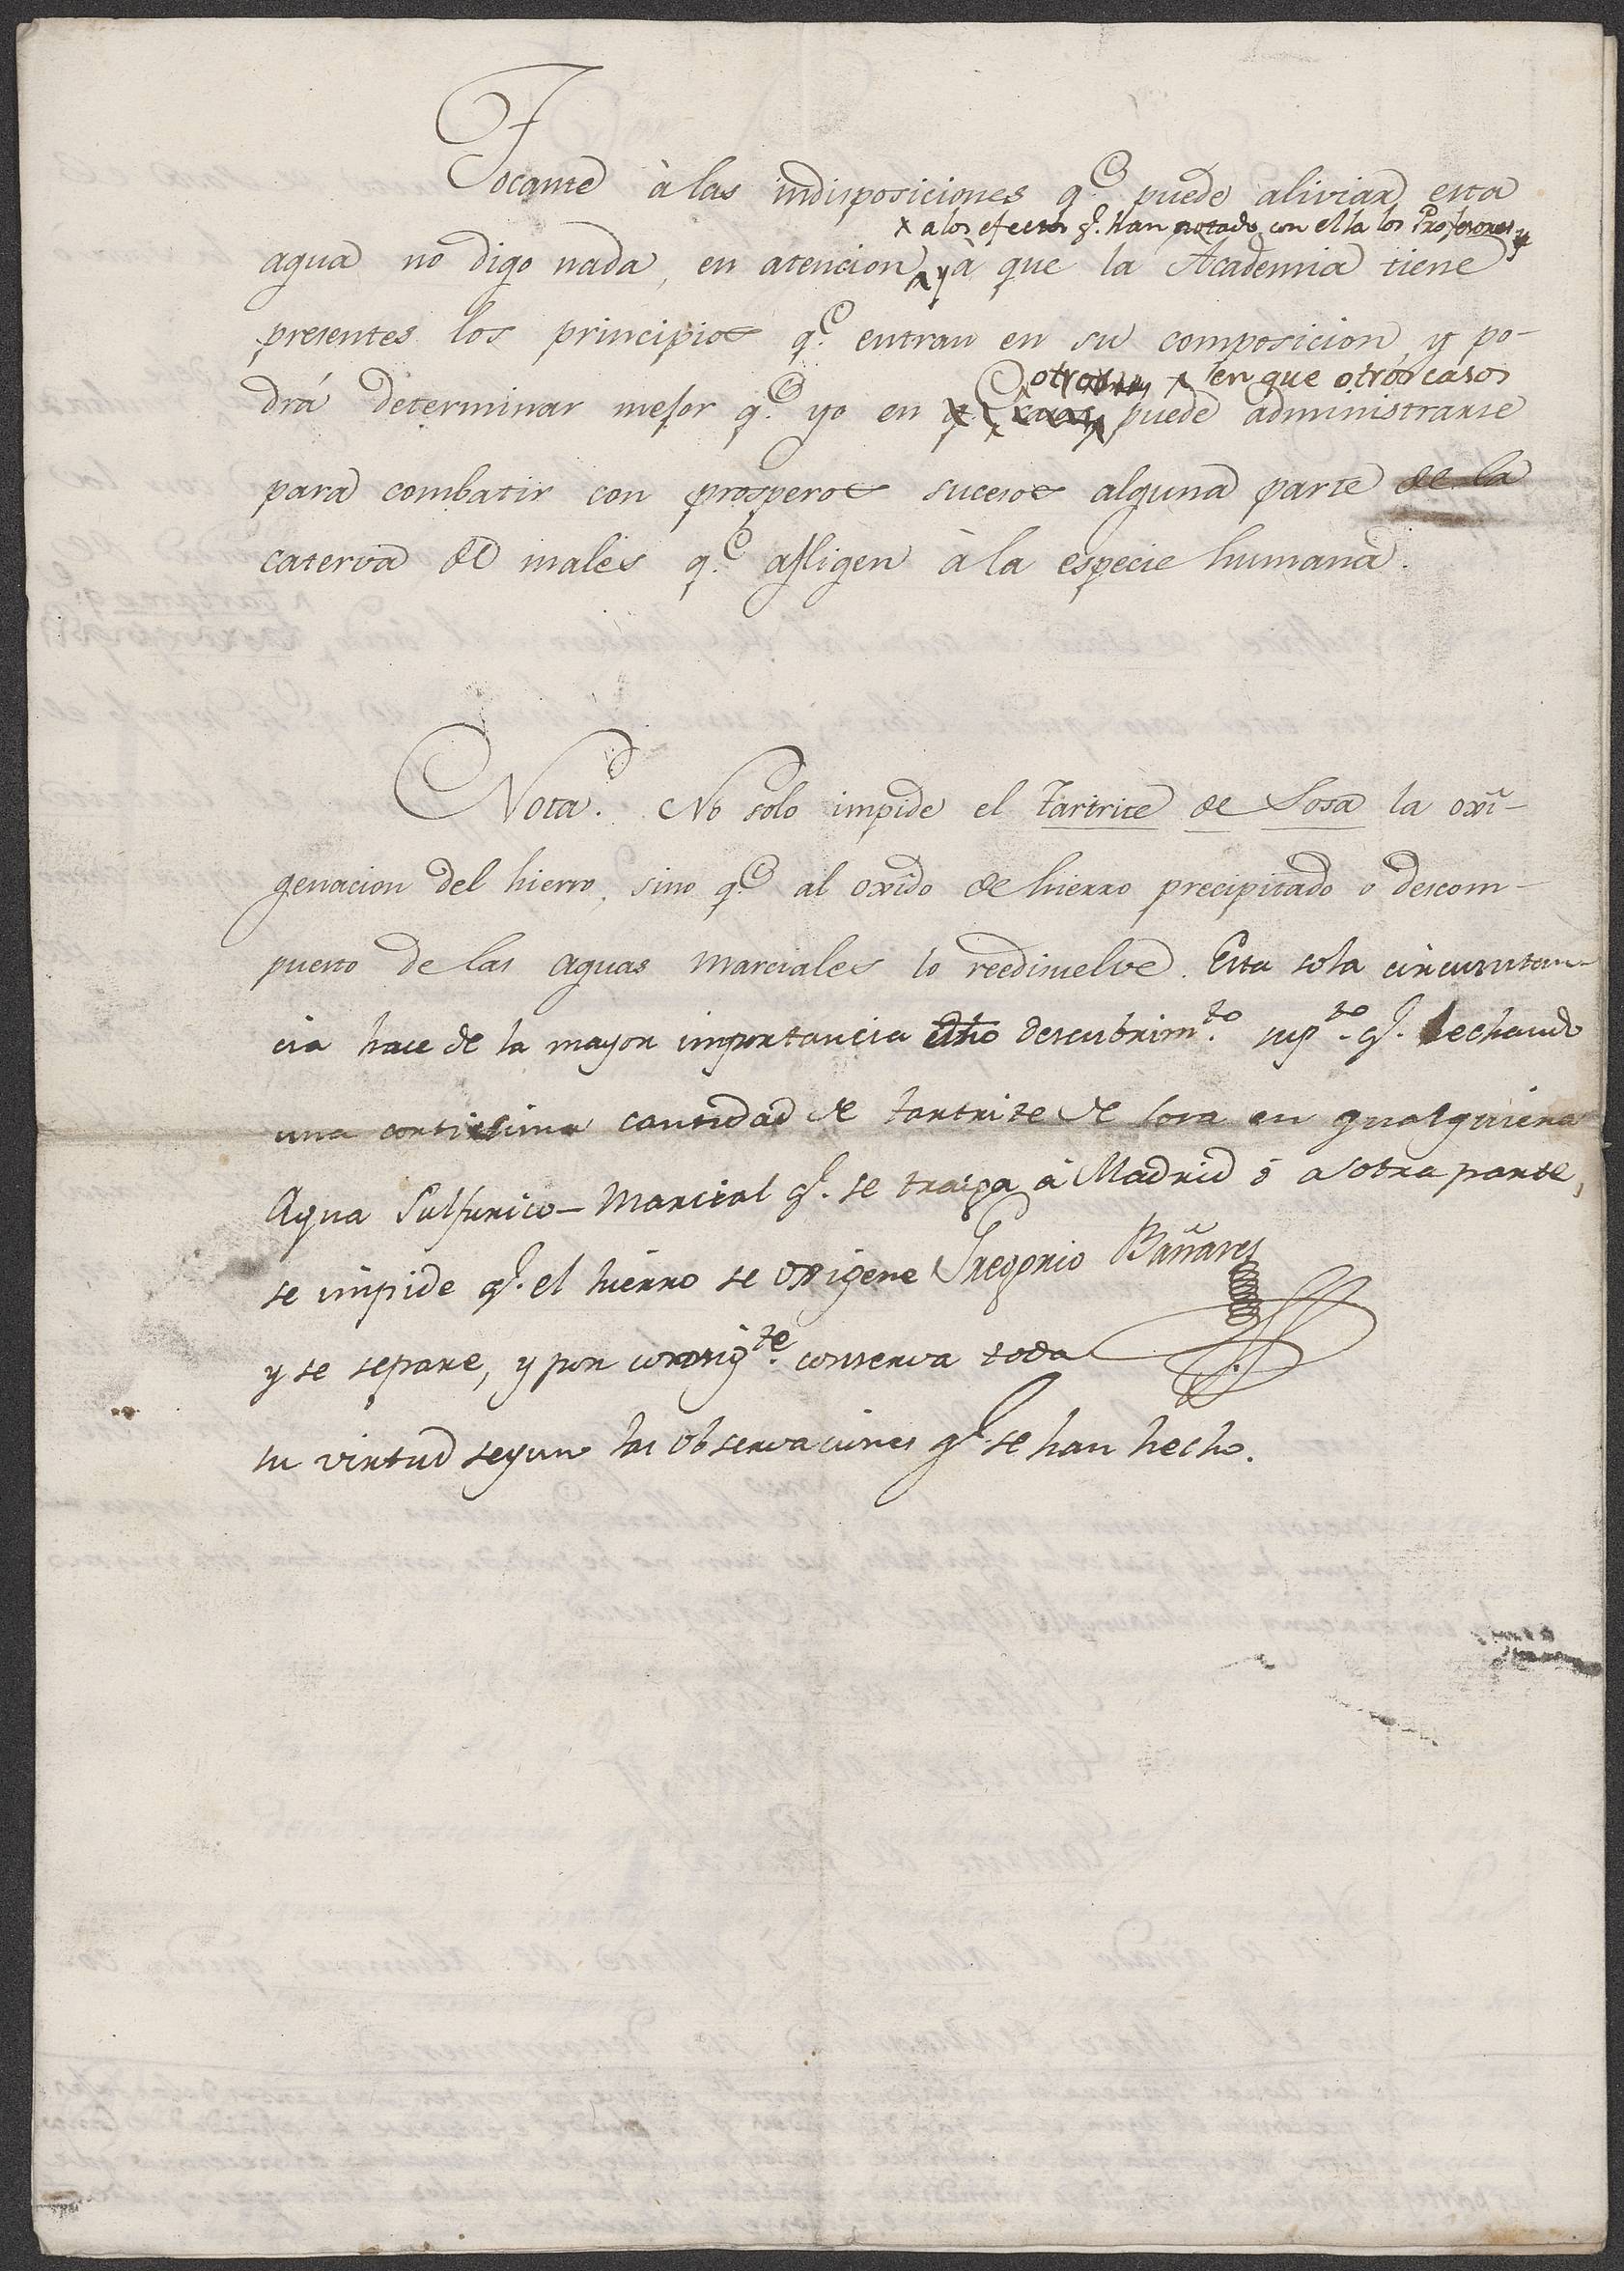 Tocante à las indisposiciones q.e puede aliviar esta
x a los efectos q.e han notado con ella los Profesores y
agua no digo nada, en atencion y à que la Academia tiene
presentes los principios q.e entran en su composicion, y po-
otros x en que otros casos
drá determinar mejor q.e yo en puede administrarse
para combatir con prosperos sucesos alguna parte de la
caterva de males q.e afligen à la especie humana.
Nota. No solo impide el Tartrite de Sosa la oxi-
genacion del hierro, sino q.e al oxido de hierro precipitado o descom-
puesto de las aguas marciales lo reedisuelve. Esta sola circunstan-
cia hace de la mayor importancia dho descubrim.to sup.to q.e echando
una cortisima cantidad de tartrite de sosa en qualquiera
Agua Sulfurico-Marcial q.e se traiga á Madrid ó a otra parte,
se impide q.e el hierro se oxigene Gregorio Bañares
y se separe, y por consig.te conserva toda
su virtud segun las observaciones q.e se han hecho.